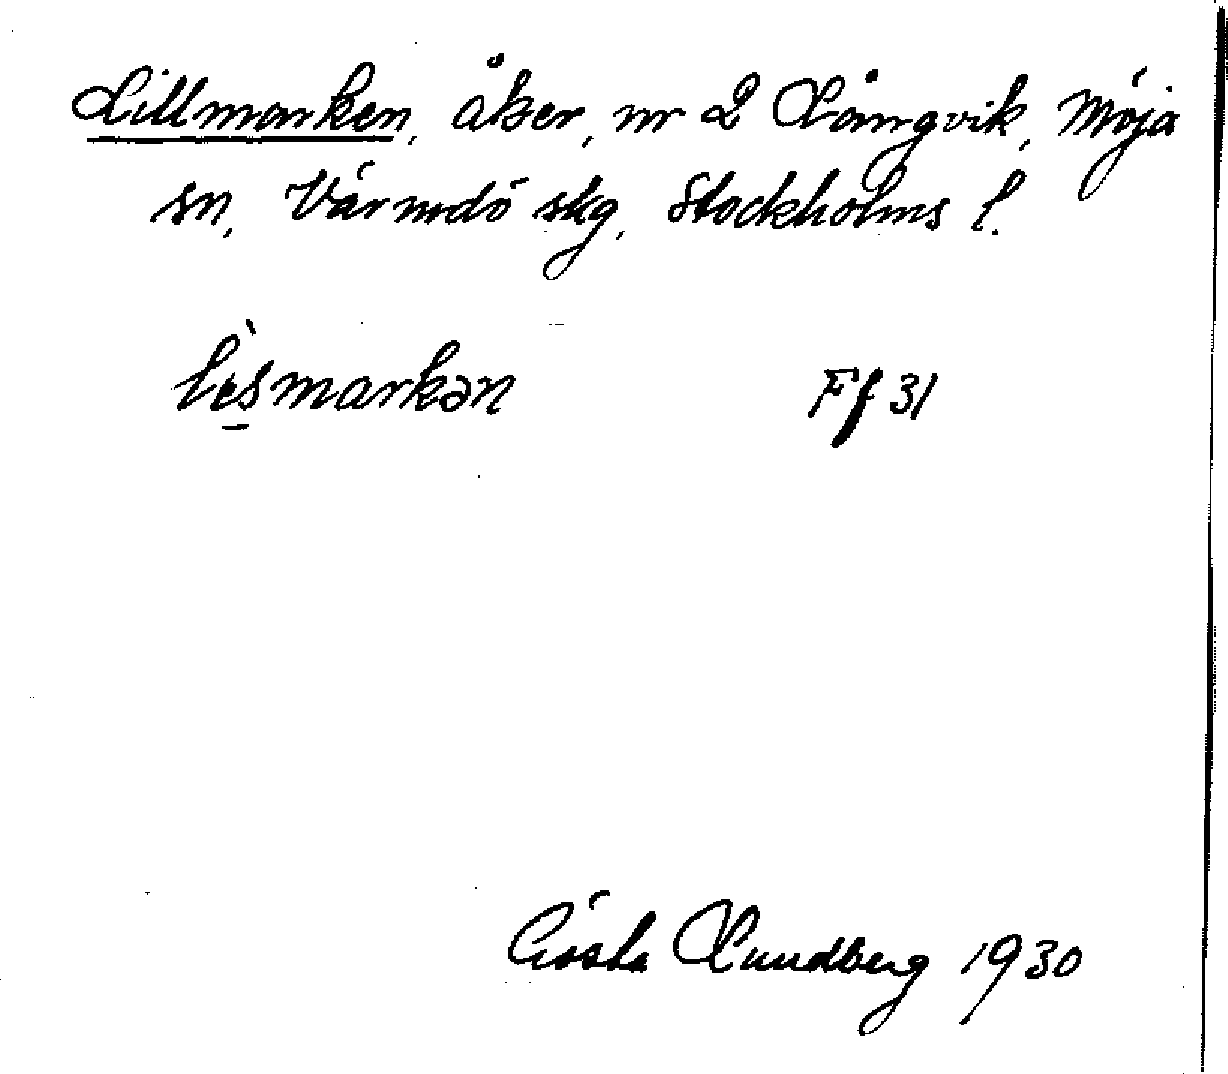 Lillmarken, åker, nr 2 Långvik, Möja
sn, Värmdö skg, Stockholms l.
Ff 31
Gösta Lundberg 1930